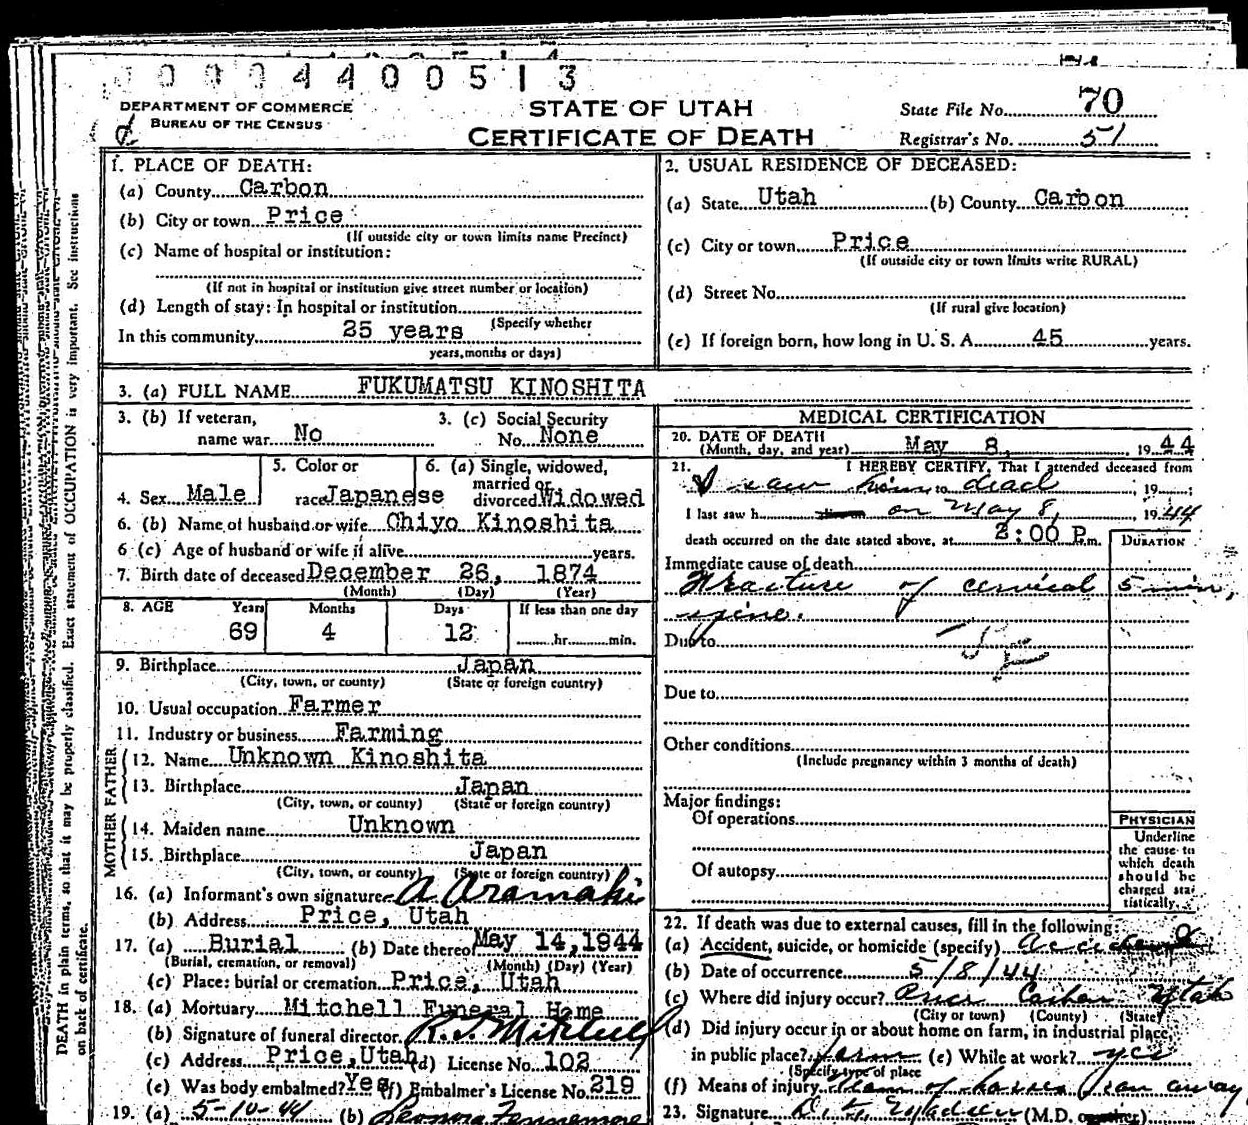 0 0 0 4 4 0 0 5 1 3
DEPARTMENT OF COMMERCE
BUREAU OF THE CENSUS
STATE OF UTAH
CERTIFICATE OF DEATH
State File No. 70
Registrar's No. 51
DEATH in plain terms, so that it may be properly classified. Exact statement of OCCUPATION is very important. See instructions
on back of certificate.
1. PLACE OF DEATH:
(a) County Carbon
(b) City or town Price
(If outside city or town limits name Precinct)
(c) Name of hospital or institution:
(If not in hospital or institution give street number or location)
(d) Length of stay: In hospital or institution
(Specify whether
In this community 25 years
years, months or days)
2. USUAL RESIDENCE OF DECEASED:
(a) State Utah (b) County Carbon
(c) City or town Price
(If outside city or town limits write RURAL)
(d) Street No.
(If rural give location)
(e) If foreign born, how long in U. S. A. 45 years.
3. (a) FULL NAME FUKUMATSU KINOSHITA
3. (b) If veteran,
name war No
3. (c) Social Security
No. None
4. Sex Male
5. Color or
race Japanese
6. (a) Single, widowed,
married or
divorced Widowed
6. (b) Name of husband or wife Chiyo Kinoshita
6 (c) Age of husband or wife if alive years.
7. Birth date of deceased December 26, 1874
(Month) (Day) (Year)
8. AGE Years Months Days If less than one day
69 4 12 hr. min.
9. Birthplace Japan
(City, town, or county) (State or foreign country)
10. Usual occupation Farmer
11. Industry or business Farming
FATHER
12. Name Unknown Kinoshita
13. Birthplace Japan
(City, town, or county) (State or foreign country)
MOTHER
14. Maiden name Unknown
15. Birthplace Japan
(City, town, or county) (State or foreign country)
16. (a) Informant's own signature A. Aramaki
(b) Address Price, Utah
17. (a) Burial (b) Date thereof May 14, 1944
(Burial, cremation, or removal) (Month) (Day) (Year)
(c) Place: burial or cremation Price, Utah
18. (a) Mortuary Mitchell Funeral Home
(b) Signature of funeral director R. S. Mitchell
(c) Address Price, Utah (d) License No. 102
(e) Was body embalmed? Yes (f) Embalmer's License No. 219
19. (a) 5-10-44 (b) Leonora Fennemore
MEDICAL CERTIFICATION
20. DATE OF DEATH
(Month, day, and year) May 8, 1944
21. I HEREBY CERTIFY, That I attended deceased from
I saw him to dead, 19 ;
I last saw h on May 8, 1944
death occurred on the date stated above, at 2:00 P.m.
DURATION
Immediate cause of death
Fracture of cervical 5 min,
spine.
Due to
Due to
Other conditions
(Include pregnancy within 3 months of death)
Major findings:
Of operations
Of autopsy
PHYSICIAN
Underline
the cause to
which death
should be
charged sta-
tistically.
22. If death was due to external causes, fill in the following:
(a) Accident, suicide, or homicide (specify) Accident
(b) Date of occurrence 5/8/44
(c) Where did injury occur? Price Carbon Utah
(City or town) (County) (State)
(d) Did injury occur in or about home on farm, in industrial place,
in public place? farm (e) While at work? yes
(Specify type of place
(f) Means of injury Team of horses ran away
23. Signature (M.D. or other)